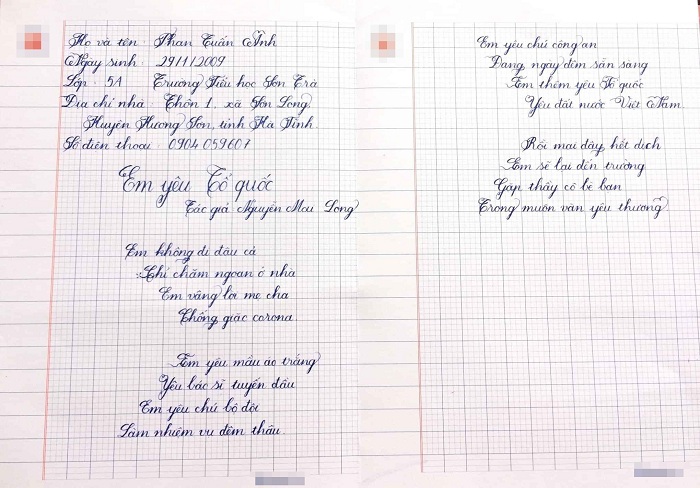 Họ và tên : Phan Tuấn Anh
Ngày sinh : 29/1/2009
Lớp : 5A Trường Tiểu học Sơn Trà
Địa chỉ nhà : Thôn 1, xã Sơn Long
Huyện Hương Sơn, tỉnh Hà Tĩnh.
Số điện thoại : 0904 059607
Em yêu Tổ quốc
Tác giả Nguyễn Mai Long
Em không đi đâu cả
Chỉ chăm ngoan ở nhà
Em vâng lời mẹ cha
Chống giặc corona.
Em yêu mầu áo trắng
Yêu bác sĩ tuyến đầu
Em yêu chú bộ đội
Làm nhiệm vụ đêm thâu.
Em yêu chú công an
Đang ngày đêm sẵn sàng
Em thêm yêu Tổ quốc
Yêu đất nước Việt Nam.
Rồi mai đây, hết dịch
Em sẽ lại đến trường
Gặp thầy cô bè bạn
Trong muôn vàn yêu thương